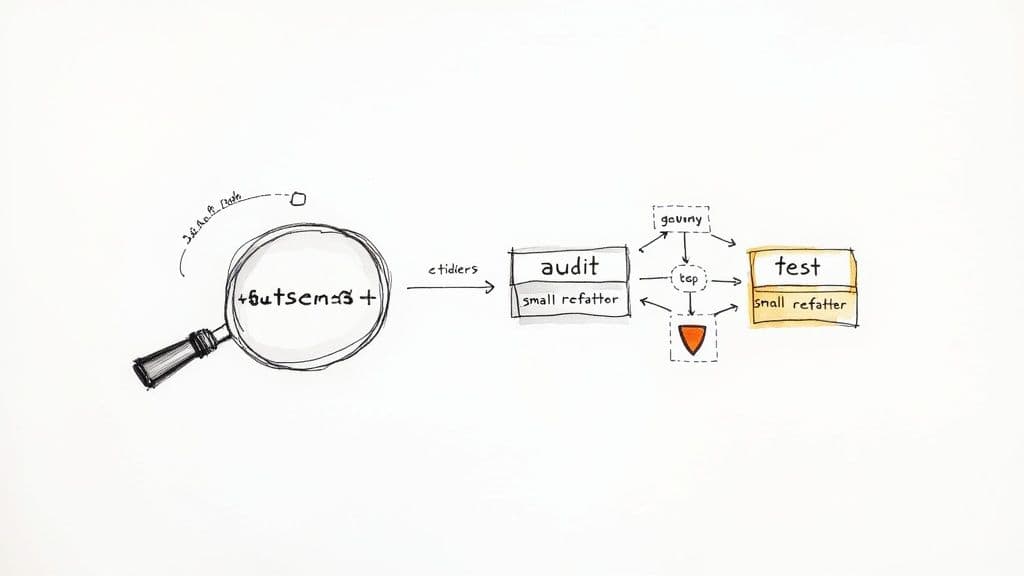 etidiers
audit
small refattor
goviny
tep
test
snall refatter